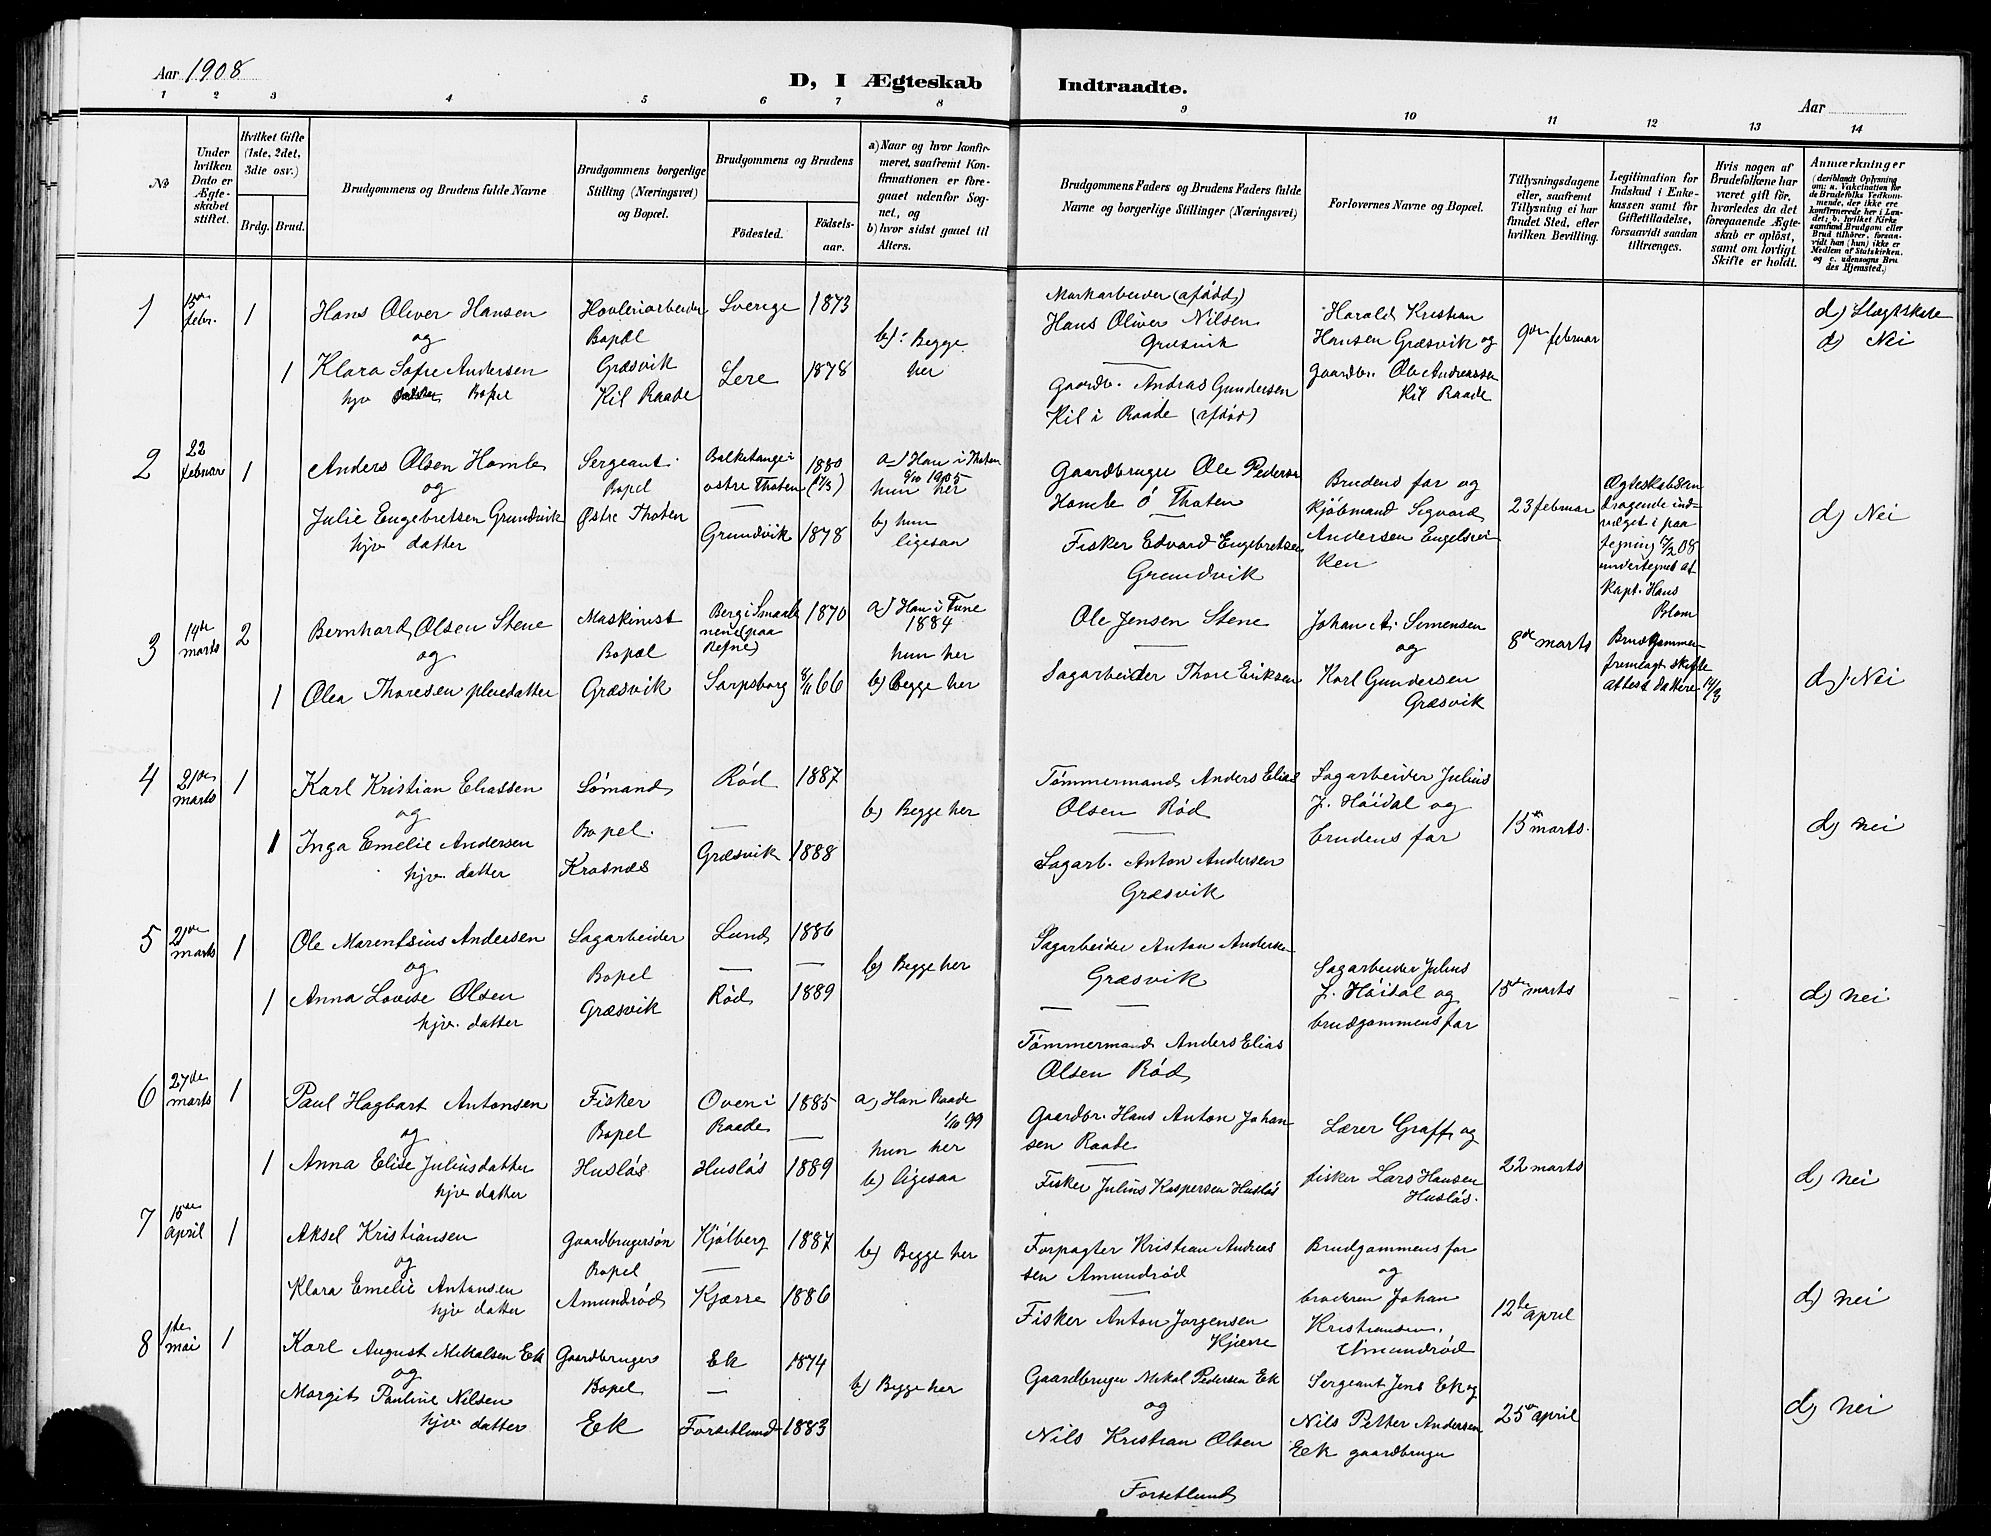 Aar 1908
D, I Ægteskab
Indtraadte.
Aar
1 2 3 4 5 6 7 8 9 10 11 12 13 14
No
Under hvilken Dato er Ægteskabet stiftet.
Hvilket Gifte (1ste, 2det, 3die osv.)
Brdg. Brud.
Brudgommens og Brudens fulde Navne
Brudgommens borgerlige Stilling (Næringsvei) og Bopæl.
Brudgommens og Brudens
Fødested.
Fødselsaar.
a) Naar og hvor konfirmeret, saafremt Konfirmationen er foregaaet udenfor Sognet, og
b) hvor sidst gaaet til Alters.
Brudgommens Faders og Brudens Faders fulde Navne og borgerlige Stillinger (Næringsvei)
Forlovernes Navne og Bopæl.
Tillysningsdagene eller, saafremt Tillysning ei har fundet Sted, efter hvilken Bevilling.
Legitimation for Indskud i Enkekassen samt for Giftetilladelse, forsaavidt saadan tiltrænges.
Hvis nogen af Brudefolkene har været gift før, hvorledes da det foregaaende Ægteskab er opløst, samt om lovligt Skifte er holdt.
Anmærkninger
(deriblandt Oplysning om: a. Vakcination for de Brudefolks Vedkommende, der ikke ere konfirmerede her i Landet; b. hvilket Kirkesamfund Brudgom eller Brud tilhører, forsaavidt han (hun) ikke er Medlem af Statskirken, og c. udensogns Brudes Hjemsted.)
1
15de febr.
1
Hans Oliver Hansen
og
1
Klara Sofie Andersen
hjv Bopel
Hovleriarbeider
Bopæl
Græsvik
Kil Raade
Sverige 1873
Lere 1878
b): Begge
her
Markarbeider (afdød)
Hans Oliver Nilsen
Græsvik
Gaardb. Andras Gundersen
Kil i Raade (afdød)
Harald Kristian
Hansen Græsvik og
gaardbr. Ole Andreassen
Kil Raade
9de februar
d) Slægtskab
d) Nei
2
22 februar
1
Anders Olsen Homle
og
Julie Engebretsen Grundvik
hjv datter
Sergeant
Bopel
Østre Thoten
Balketange i
østre Thoten
1880
Grundvik 1878
a) Han i Thoten
1/10 1905
hun her
b) hun
ligesaa
Gaardbruger Ole Pedersen
Homle Ø Thoten
Fisker Edvard Engebretsen
Grundvik
Brudens far og
kjøbmand Sigvard
Andersen Engelsvi-
ken
23 februar
Ægteskabsan
dragende ind-
vilget i paa
tegning 7/2 08
undertegnet af
Kapt. Hans
Blom
d) Nei
3
14de marts
2
Bernhard Olsen Stene
og
1
Olea Thoresen pleiedatter
Maskinist
Bopæl
Græsvik
Berg i Smaale
nene (paa
1870
Sarpsborg 8/11 66
a) Han i Tune
1884
hun her
b) Begge her
Ole Jensen Stene
Sagarbeider Thore Eriksen
Johan A. Simensen
og
Karl Gundersen
Græsvik
8de marts
Brudgommen
fremlagt skifte
attest dateret 14/3
d) Nei
4
21de marts
1
Karl Kristian Eliassen
og
1
Inga Emelie Andersen
hjv. datter
Sømand
Bopel.
Krosnæs
Rød 1887
Græsvik 1888
b) Begge her
Tømmermand Anders Elias
Olsen Rød
Sagarb. Anton Andersen
Græsvik
Sagarbeider Julius
J. Høidal og
brudens far
15de marts.
d) nei
5
21de marts
1
Ole Marentsius Andersen
og
1
Anna Lovise Olsen
hjv. datter
Sagarbeider
Bopel
Græsvik
Lund 1886
Rød 1889
b) Begge her
Sagarbeider Anton Andersen
Græsvik
Tømmermand Anders Elias
Olsen Rød
Sagarbeider Julius
J. Høidal og
brudgommens far
15de marts
d) nei
6
27de marts
1
Paul Hagbart Antonsen
og
1
Anna Elise Juliusdatter
hjv datter
Fisker
Bopel
Husløs
Oven i
Raade
1885
Husløs 1889
a) Han Raade
1/10 99
hun her
b) ligesaa
Gaardbr. Hans Anton Johan
sen Raade
Fisker Julius Kaspersen Husløs
Lærer Graff og
fisker Lars Hansen
Husløs.
22 marts
d) nei
7
15de april
1
Aksel Kristiansen
og
Klara Emelie Antonsen
hjv datter
Gaardbrugersøn
Bopel
Amundrød
Kjølberg 1887
Kjærre 1886
b) Begge her
Forpagter Kristian Andreas
sen Amundrød
Fisker Anton Jørgensen
Kjærre
Brudgommens far
og
broderen Johan
Kristiansen,
Amundrød
12te april
d) nei
8
1ste mai
1
Karl August Mikalsen Ek
og
Margit Pauline Nilsen
hjv. datter
Gaardbruger
Bopel
Ek
Ek 1874
Forsetlund 1883
b) Begge her
Gaardbruger Mikal Pedersen Ek
og
Nils Kristian Olsen
Forsetlund
Sergeant Jens Ek og
Nils Petter Andersen
Ek gaardbruger
25de april
d) nei